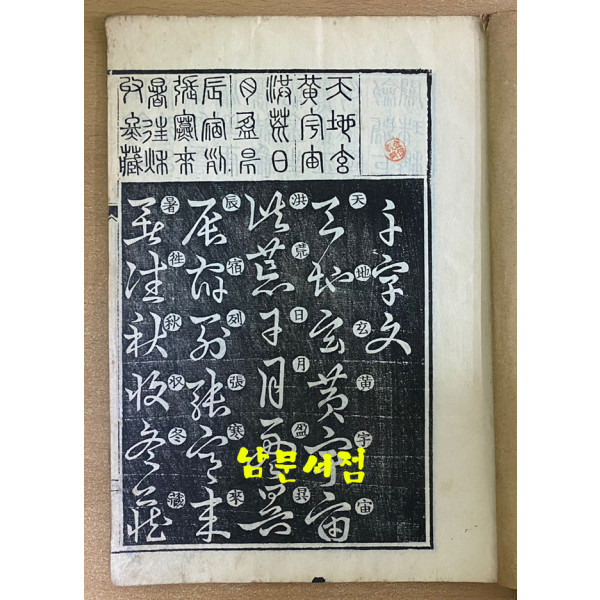 天地玄
黃宇宙
洪荒日
月盈昃
辰宿列
張寒來
暑往秋
收冬藏
千字文
天地玄黃宇宙
天地玄黃宇宙
洪荒日月盈昃
洪荒日月盈昃
辰宿列張寒來
辰宿列張寒來
暑往秋收冬藏
暑徃秋収冬藏
남문서점